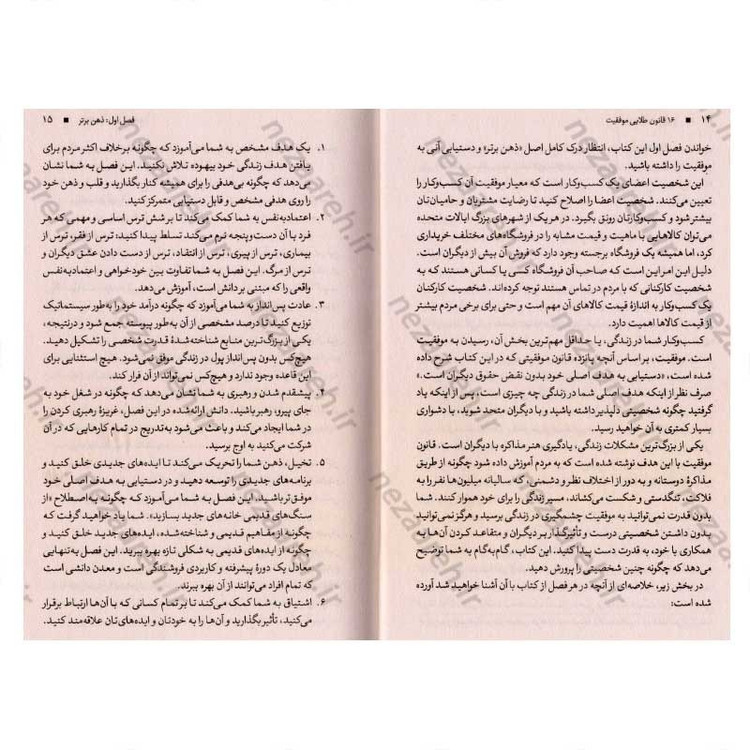 ۱۴ ■ ۱۶ قانون طلایی موفقیت
خواندن فصل اول این کتاب، انتظار درک کامل اصل «ذهن برتر» و دستیابی آنی به
موفقیت را داشته باشید.
این شخصیت اعضای یک کسب‌وکار است که معیار موفقیت آن کسب‌وکار را
تعیین می‌کند. شخصیت اعضا را اصلاح کنید تا رضایت مشتریان و حامیان‌تان
بیشتر شود و کسب‌وکارتان رونق بگیرد. در هر یک از شهرهای بزرگ ایالات متحده
می‌توان کالاهایی با ماهیت و قیمت مشابه را در فروشگاه‌های مختلف خریداری
کرد، اما همیشه یک فروشگاه برجسته وجود دارد که فروش آن بیش از دیگران است.
دلیل این امر این است که صاحب آن فروشگاه کسی یا کسانی هستند که به
شخصیت کارکنانی که با مردم در تماس هستند توجه کرده‌اند. شخصیت کارکنان
یک کسب‌وکار به اندازهٔ قیمت کالاهای آن مهم است و حتی برای برخی مردم بیشتر
از قیمت کالاها اهمیت دارد.
کسب‌وکار شما در زندگی، یا حداقل مهم‌ترین بخش آن، رسیدن به موفقیت
است. موفقیت، بر اساس آنچه پانزده قانون موفقیتی که در این کتاب شرح داده
شده است، «دستیابی به هدف اصلی خود بدون نقض حقوق دیگران است.»
صرف نظر از اینکه هدف اصلی شما در زندگی چه چیزی است، پس از اینکه یاد
گرفتید چگونه شخصیتی دلپذیر داشته باشید و با دیگران متحد شوید، با دشواری
بسیار کمتری به آن خواهید رسید.
یکی از بزرگ‌ترین مشکلات زندگی، یادگیری هنر مذاکره با دیگران است. قانون
موفقیت با این هدف نوشته شده است که به مردم آموزش داده شود چگونه از طریق
مذاکرهٔ دوستانه و به دور از اختلاف نظر و دشمنی که سالیانه میلیون‌ها نفر را به
فلاکت، تنگدستی و شکست می‌کشاند، مسیر زندگی را برای خود هموار کنند. شما
بدون قدرت نمی‌توانید به موفقیت چشمگیری در زندگی برسید و هرگز نمی‌توانید
بدون داشتن شخصیتی درست و تأثیرگذار بر دیگران و متقاعد کردن آن‌ها به
همکاری با خود، به قدرت دست پیدا کنید. این کتاب، گام‌به‌گام به شما توضیح
می‌دهد که چگونه چنین شخصیتی را پرورش دهید.
در بخش زیر، خلاصه‌ای از آنچه در هر فصل از کتاب با آن آشنا خواهید شد آورده
شده است:
فصل اول: ذهن برتر ■ ۱۵
۱. یک هدف مشخص به شما می‌آموزد که چگونه برخلاف اکثر مردم برای
یافتن هدف زندگی خود بیهوده تلاش نکنید. این فصل به شما نشان
می‌دهد که چگونه بی‌هدفی را برای همیشه کنار بگذارید و قلب و ذهن خود
را روی هدفی مشخص و قابل دستیابی متمرکز کنید.
۲. اعتمادبه‌نفس به شما کمک می‌کند تا بر شش ترس اساسی و مهمی که هر
فرد با آن دست‌وپنجه نرم می‌کند تسلط پیدا کنید: ترس از فقر، ترس از
بیماری، ترس از پیری، ترس از انتقاد، ترس از دست دادن عشق دیگران و
ترس از مرگ. این فصل به شما تفاوت بین خودخواهی و اعتمادبه‌نفس
واقعی را که مبتنی بر دانش است، آموزش می‌دهد.
۳. عادت پس‌انداز به شما می‌آموزد که چگونه درآمد خود را به‌طور سیستماتیک
توزیع کنید تا درصد مشخصی از آن به‌طور پیوسته جمع شود و درنتیجه،
یکی از بزرگ‌ترین منابع شناخته‌شدهٔ قدرت شخصی را تشکیل دهید.
هیچ‌کس بدون پس‌انداز پول در زندگی موفق نمی‌شود. هیچ استثنایی برای
این قاعده وجود ندارد و هیچ‌کس نمی‌تواند از آن فرار کند.
۴. پیشقدم شدن و رهبری به شما نشان می‌دهد که چگونه در شغل خود به
جای پیرو، رهبر باشید. دانش ارائه‌شده در این فصل، غریزهٔ رهبری کردن را
در شما ایجاد می‌کند و باعث می‌شود به‌تدریج در تمام کارهایی که در آن
شرکت می‌کنید به اوج برسید.
۵. تخیل، ذهن شما را تحریک می‌کند تا ایده‌های جدیدی خلق کنید و
برنامه‌های جدیدی را توسعه دهید و در دستیابی به هدف اصلی خود
موفق‌تر باشید. این فصل به شما می‌آموزد که چگونه به‌اصطلاح «از
سنگ‌های قدیمی خانه‌های جدید بسازید». شما یاد خواهید گرفت که
چگونه از مفاهیم قدیمی و شناخته‌شده، ایده‌های جدید خلق کنید و
چگونه از ایده‌های قدیمی به شکلی تازه بهره ببرید. این فصل به‌تنهایی
معادل یک دورهٔ پیشرفته و کاربردی فروشندگی است و معدن دانشی است
که تمام افراد می‌توانند از آن بهره ببرند.
۶. اشتیاق به شما کمک می‌کند تا بر تمام کسانی که با آن‌ها ارتباط برقرار
می‌کنید، تأثیر بگذارید و آن‌ها را به خودتان و ایده‌های‌تان علاقه‌مند کنید.
nezareh.ir